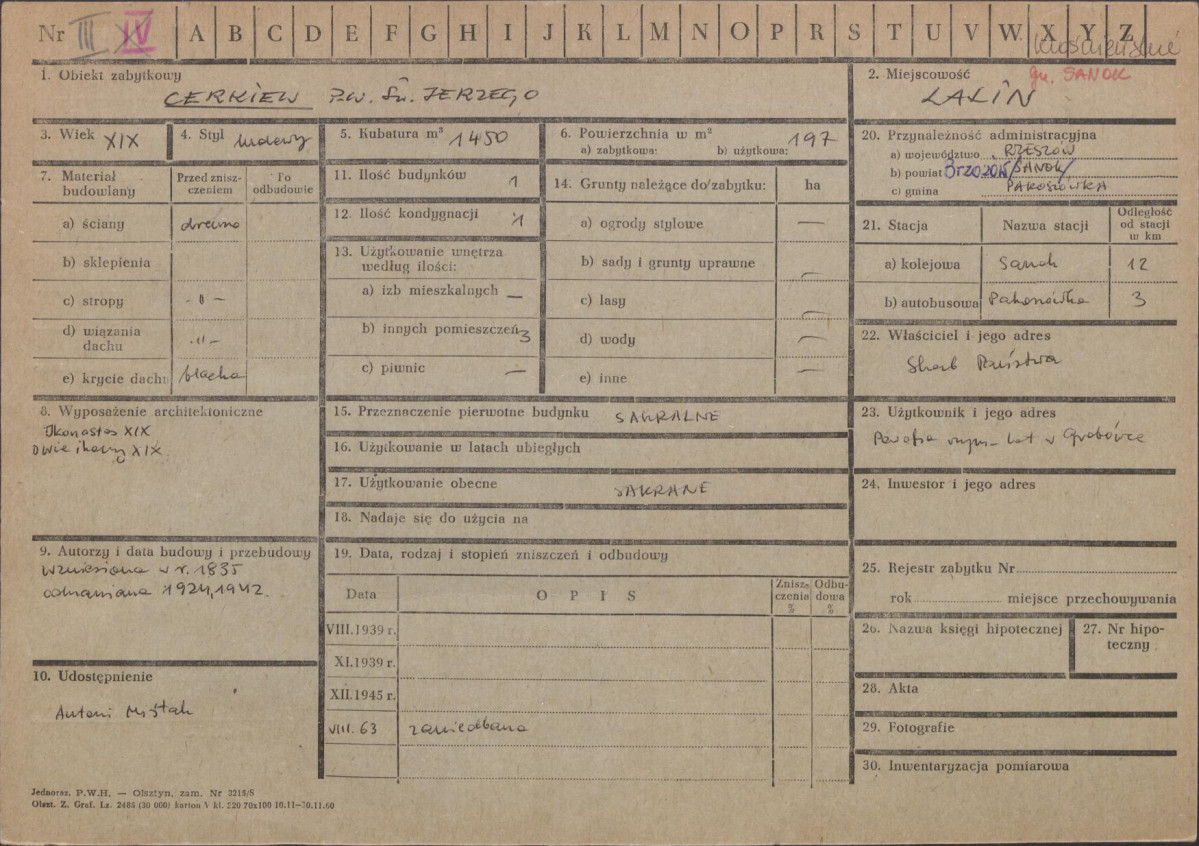 Nr III IV A B C D E F G H I J K L M N O P R S T U V W X Y Z
gm. SANOK
1. Obiekt zabytkowy
CERKIEW P.W. Św. JERZEGO
2. Miejscowość
ŁALIN
3. Wiek XIX
4. Styl ludowy
5. Kubatura m³ 1450
6. Powierzchnia w m²
a) zabytkowa: b) użytkowa: 197
7. Materiał budowlany
Przed zniszczeniem
Po odbudowie
a) ściany drewno
b) sklepienia
c) stropy -"-
d) wiązania dachu -"-
e) krycie dachu blacha
8. Wyposażenie architektoniczne
Ikonostas XIX
Dwie ikony XIX
9. Autorzy i data budowy i przebudowy
Wzniesiona w r. 1835
odnawiana 1924, 1942.
10. Udostępnienie
Antoni Miśtak
11. Ilość budynków 1
12. Ilość kondygnacji 1
13. Użytkowanie wnętrza według ilości:
a) izb mieszkalnych —
b) innych pomieszczeń 3
c) piwnic —
14. Grunty należące do zabytku: ha
a) ogrody stylowe —
b) sady i grunty uprawne —
c) lasy —
d) wody —
e) inne —
15. Przeznaczenie pierwotne budynku SAKRALNE
16. Użytkowanie w latach ubiegłych
17. Użytkowanie obecne SAKRANE
18. Nadaje się do użycia na
19. Data, rodzaj i stopień zniszczeń i odbudowy
Data O P I S Zniszczenia % Odbudowa %
VIII.1939 r.
XI.1939 r.
XII.1945 r.
VIII. 63 zaniedbana
20. Przynależność administracyjna
a) województwo RZESZÓW
b) powiat Brzozów /SANOK/
c) gmina PAKOSZÓWKA
21. Stacja Nazwa stacji Odległość od stacji w km
a) kolejowa Sanok 12
b) autobusowa Pakoszówka 3
22. Właściciel i jego adres
Skarb Państwa
23. Użytkownik i jego adres
Parafia rzym-kat w Grabówce
24. Inwestor i jego adres
25. Rejestr zabytku Nr
rok miejsce przechowywania
26. Nazwa księgi hipotecznej
27. Nr hipoteczny
28. Akta
29. Fotografie
30. Inwentaryzacja pomiarowa
Jednoraz. P.W.H. — Olsztyn, zam. Nr 3218/S
Olszt. Z. Graf. Lz. 2485 (30 000) karton V kl. 220 70x100 10.11—30.11.60